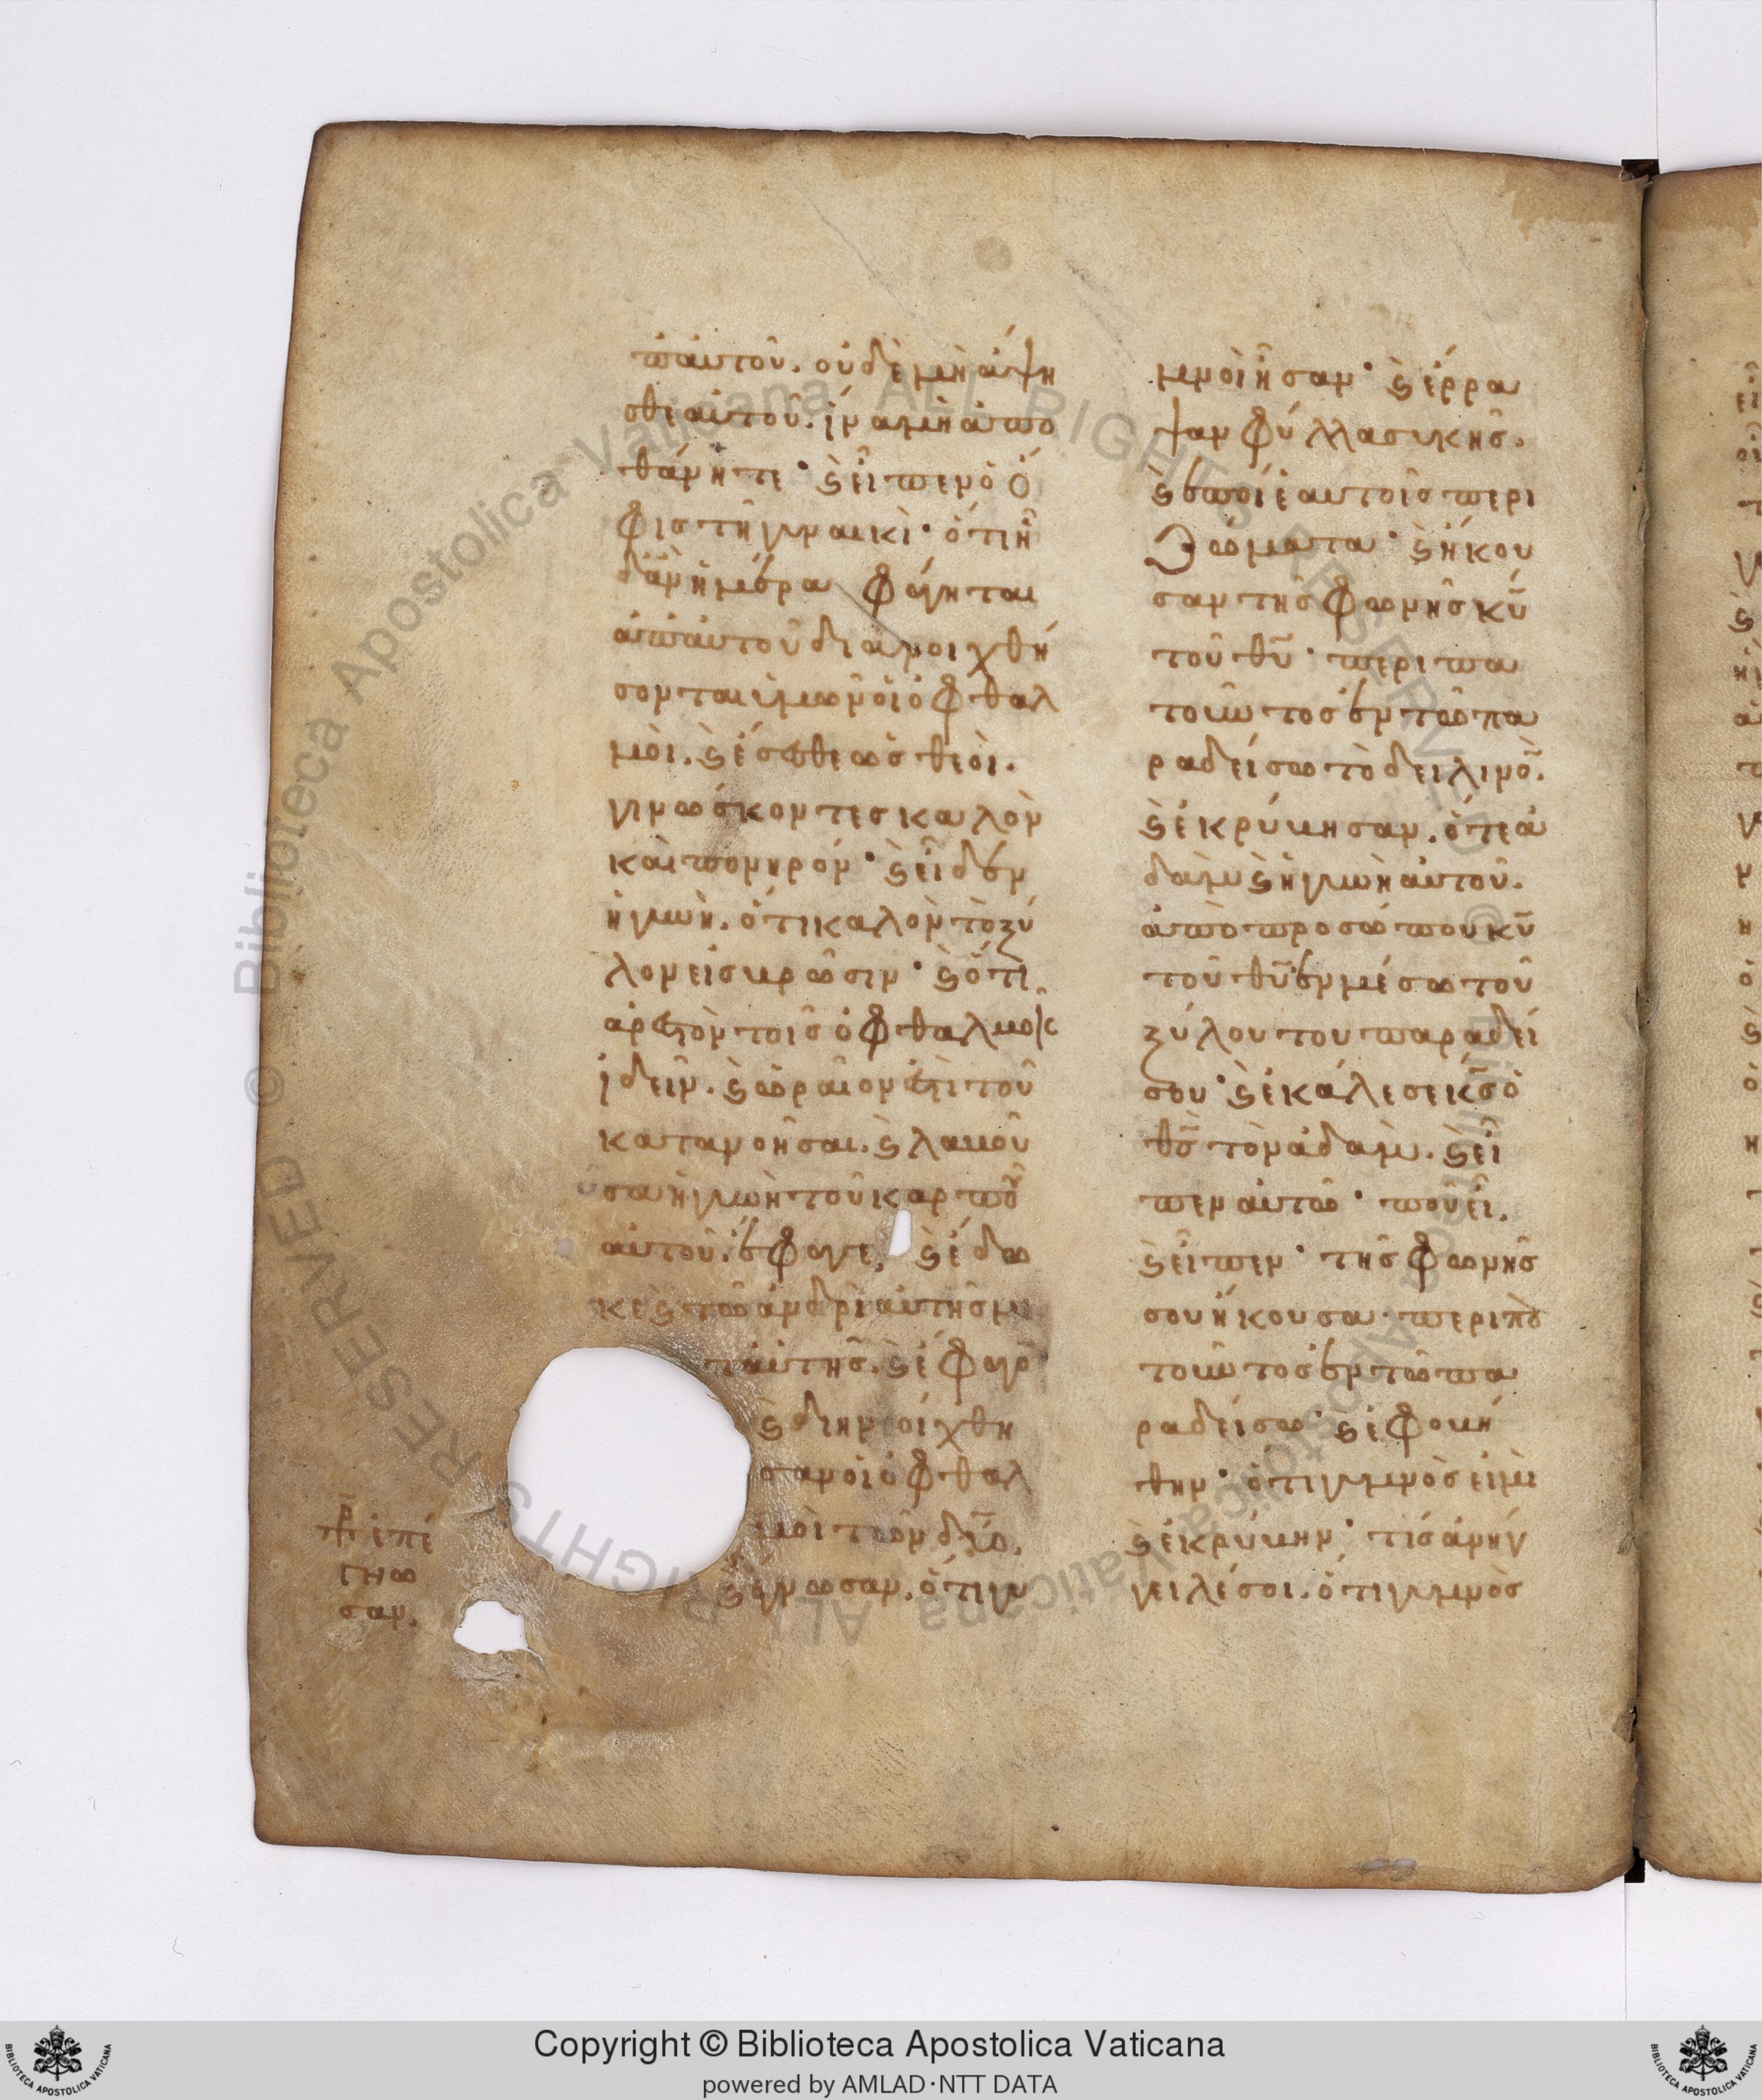 π' αυτοῦ. οὐδὲ μὴ ἅψη
σθε αὐτοῦ. ἵνα μὴ ἀπο
θάνητε· ϗ εἶπεν ὁ ὄ
φις τῆ γυναικὶ· ὅτι ἧ
δ' ἂν ἡμέρα φάγηται
ἀπ' αὐτοῦ διανοιχθή
σονται ὑμῶν οἱ ὀφθαλ
μοὶ. ϗ ἔσεσθε ὡς θεοὶ.
γινώσκοντες καλὸν
καὶ πονηρόν· ϗ εἶδεν
ἡ γυνὴ. ὅτι καλὸν τὸ ξύ
λον εἰς βρῶσιν· ϗ ὅτι
ἀρεστὸν τοῖς ὀφθαλμοῖς
ἰδεῖν. ϗ ὡραῖον ἐστι τοῦ
κατανοῆσαι. ϗ λαβοῦ
σα ἡ γυνὴ τοῦ καρποῦ
αὐτοῦ. ἔφαγε, ϗ ἔδω
κε ϗ τῶ ἀνδρὶ αὐτῆς με
τ' αὐτῆς. ϗ ἔφαγον
ϗ διηνοίχθη
σαν οἱ ὀφθαλ
μοὶ τῶν δύο.
ϗ ἔγνωσαν. ὅτι γυ
μνοὶ ἦσαν· ϗ ἔρρα
ψαν φύλλα συκῆς.
ϗ ἐποίησαν ἑαυτοῖς περι
ζώματα· ϗ ἤκου
σαν τῆς φωνῆς κυ̅
τοῦ θυ̅· περιπα
τοῦντος ἐν τῶ πα
ραδείσω τὸ δειλινὸν.
ϗ ἐκρύβησαν. ὅ τε ἀ
δὰμ ϗ ἡ γυνὴ αὐτοῦ.
ἀπὸ προσώπου κυ̅
τοῦ θυ̅ ἐν μέσω τοῦ
ξύλου του παραδεί
σου· ϗ ἐκάλεσε κς̅ ὁ
θς̅ τὸν ἀδὰμ. ϗ εἶ
πεν αὐτῶ· ποῦ εἶ.
ϗ εἶπεν· τῆς φωνῆς
σου ἤκουσα· περιπα
τοῦντος ἐν τῶ πα
ραδείσω· ϗ ἐφοβή
θην· ὅτι γυμνὸς εἰμὶ
ϗ ἐκρύβην· τίς ἀνήγ
γειλέ σοι. ὅτι γυμνὸς